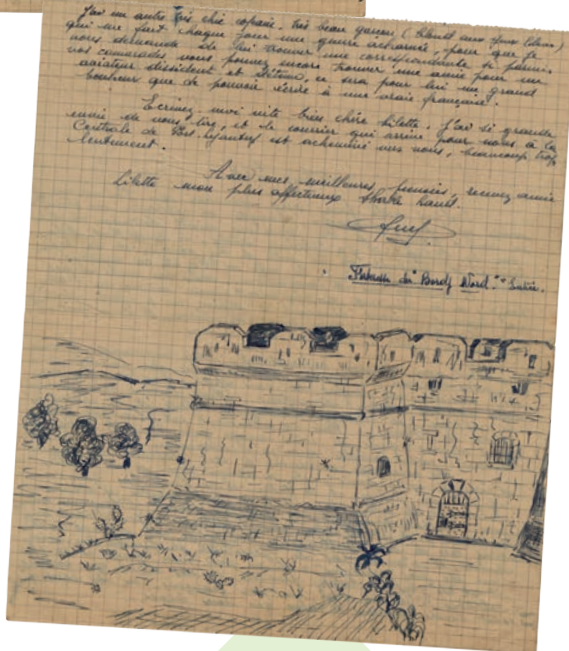 J'ai un autre très chic copain, très beau garçon (blond aux yeux bleus)
qui me fait chaque jour une guerre acharnée, pour que je
vous demande de lui trouver une correspondante. Si parmi
vos camarades vous pouvez encore trouver une amie pour un
aviateur dissident et détenu, ce sera pour lui un grand
bonheur que de pouvoir écrire à une vraie française.
Écrivez-moi vite bien chère Lilette. J'ai si grande
envie de vous lire, et le courrier qui arrive pour nous à la
Centrale de est acheminé vers nous, beaucoup trop
lentement.
Avec mes meilleures pensées, recevez amie
Lilette mon plus affectueux shake hand.
du "Bordj Nord"